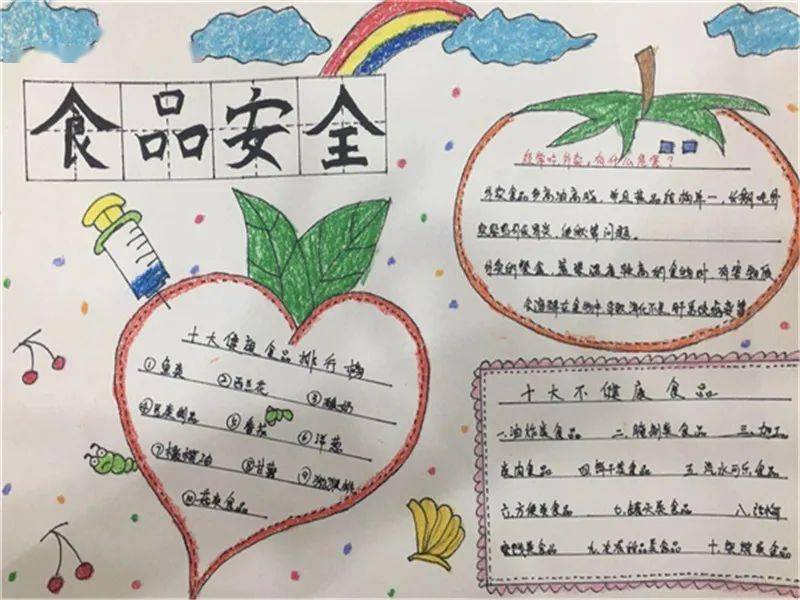 食品安全
经常吃外卖，有什么危害？
外卖食品多高油高脂，并且菜品结构单一，长期吃外
问题。
外卖的餐盒，盛装温度较高的食物时，有害物质
会溶解在食物中
十大健康食品排行榜
①鱼类 ②西兰花 ③酸奶
④豆类制品 ⑤番茄 ⑥洋葱
⑦橄榄油 ⑧甘薯 ⑨猕猴桃
⑩菇类食品
十大不健康食品
一.油炸类食品 二.腌制类食品 三.加工
类肉食品 四.饼干类食品 五.汽水可乐食品
六.方便类食品 七.罐头类食品 八.话梅
蜜饯类食品 九.冷冻甜品类食品 十.烧烤类食品